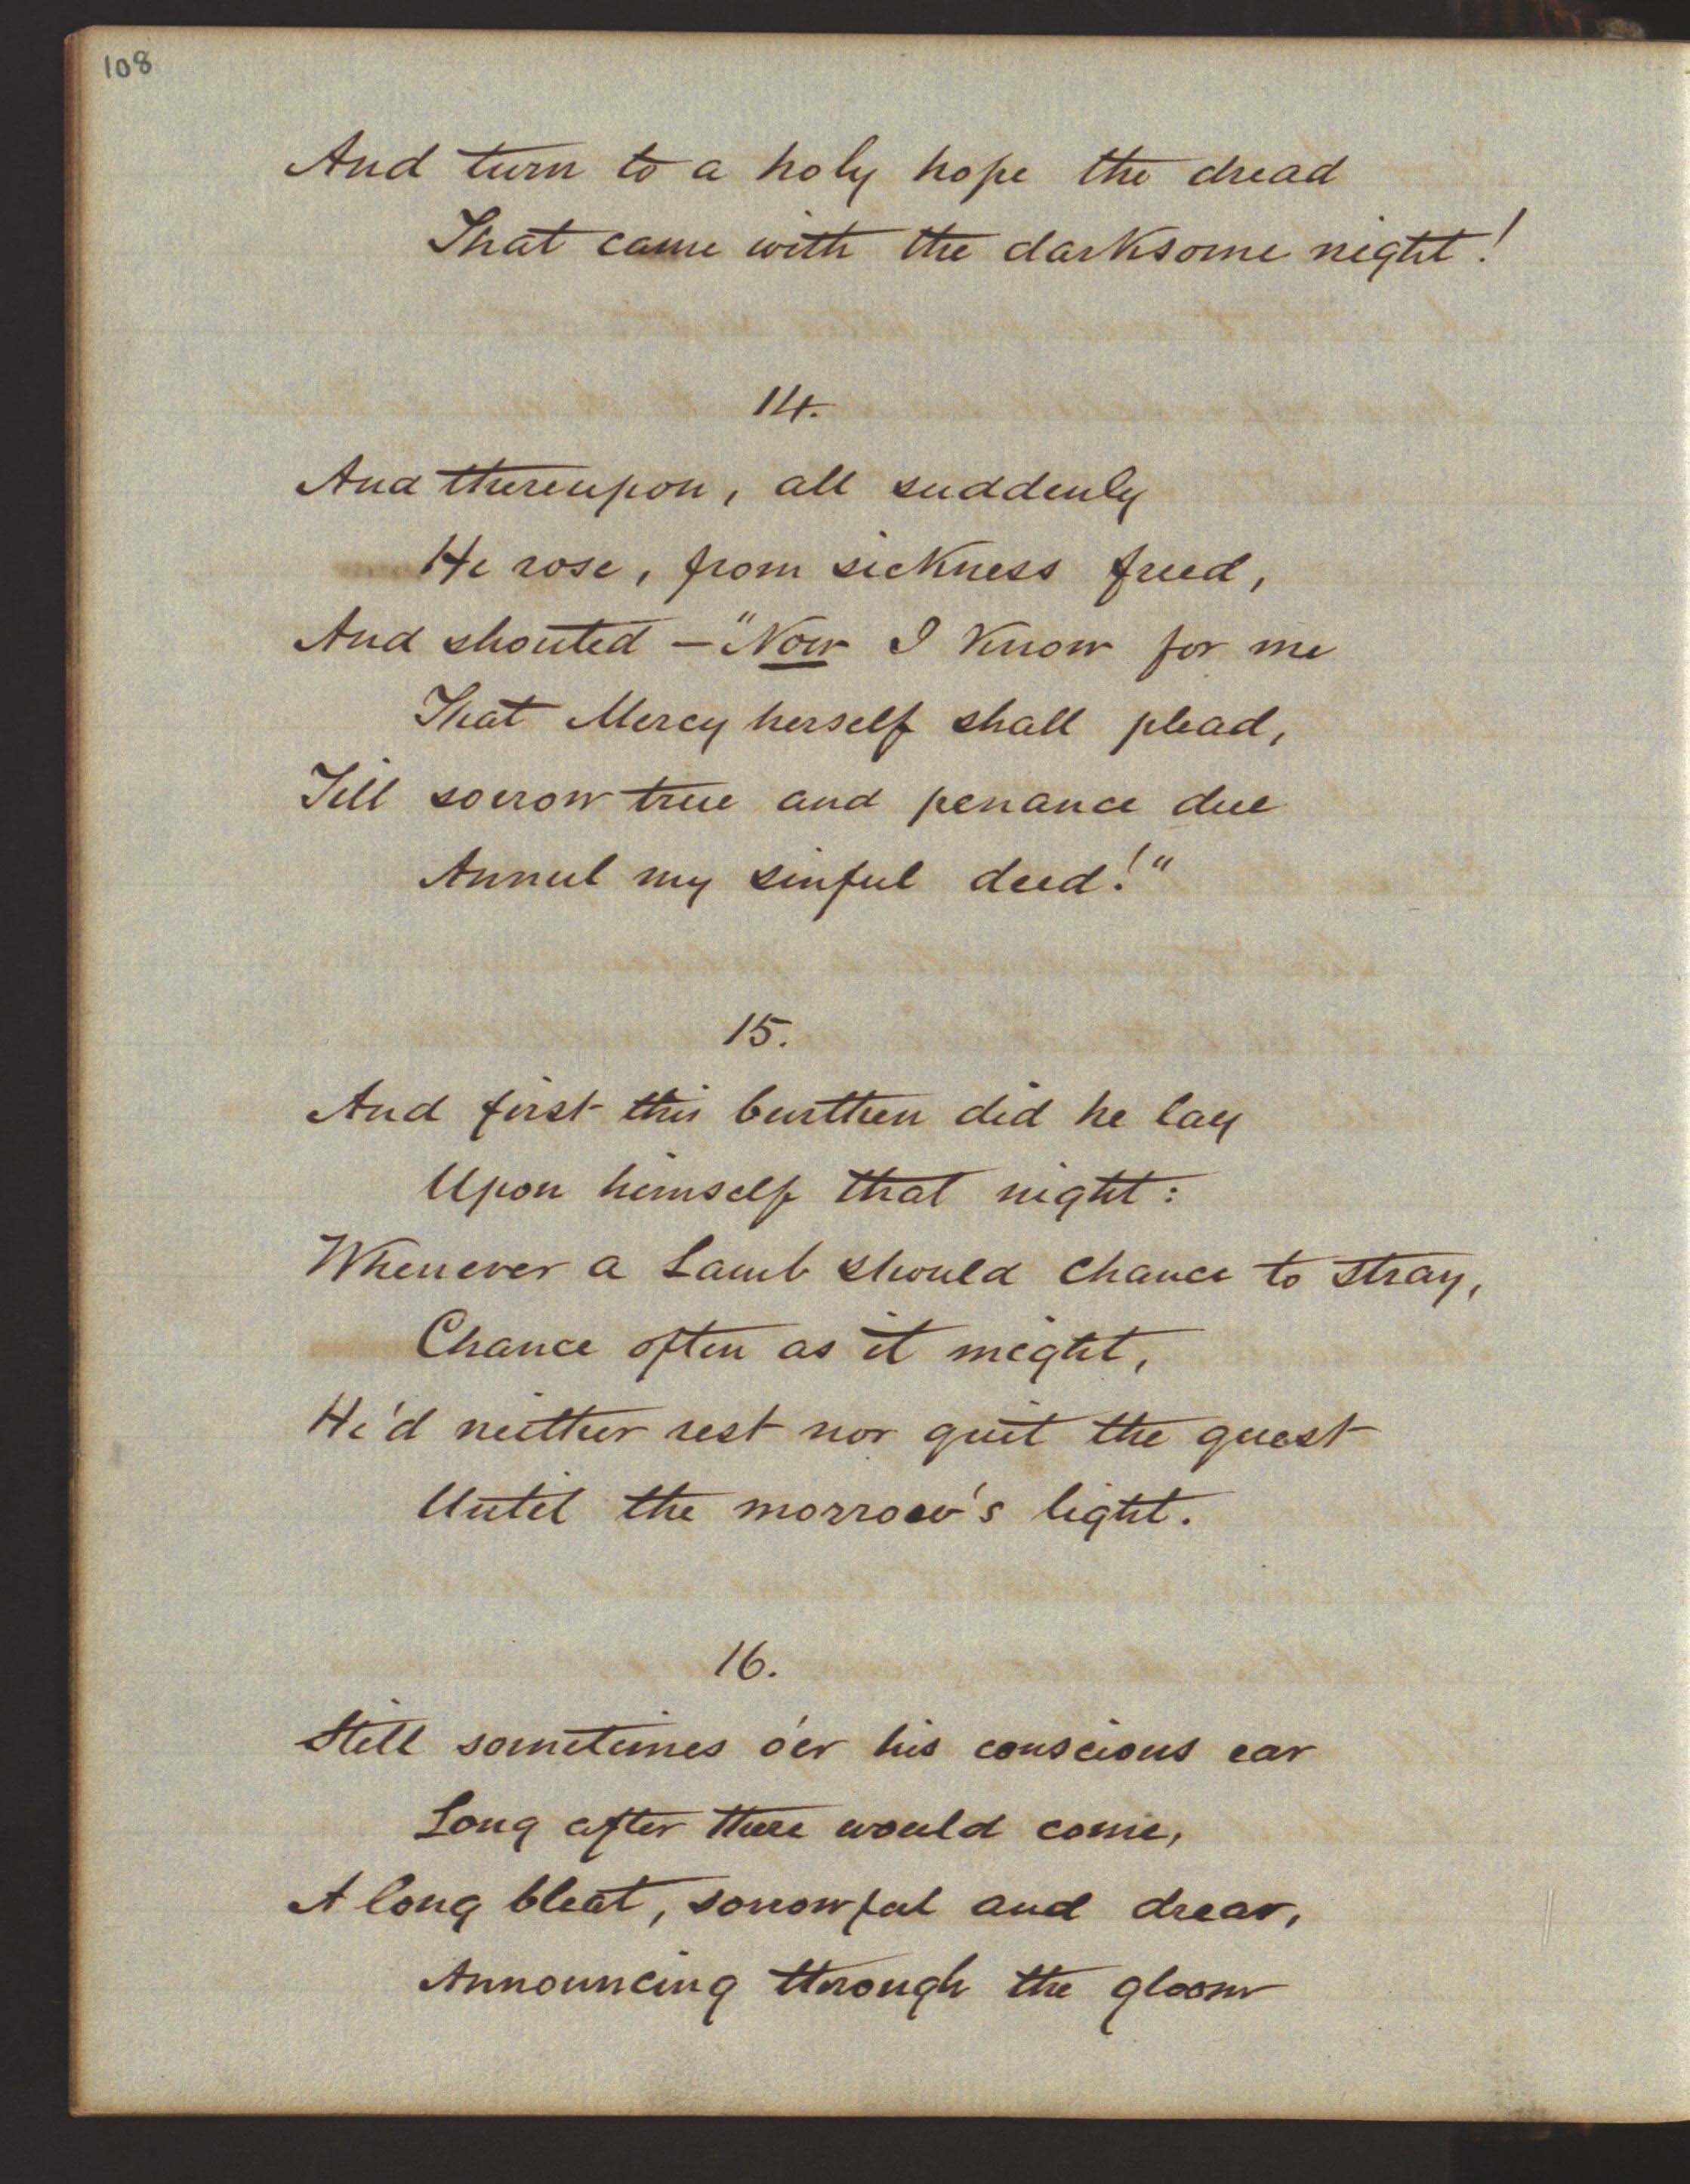 108
And turn to a holy hope the dread
That came with the darksome night!
14.
And thereupon, all suddenly
He rose, from sickness freed,
And shouted — "Now I know for me
That Mercy herself shall plead,
Till sorrow true and penance due
Annul my sinful deed!"
15.
And first this burthen did he lay
Upon himself that night:
Whenever a Lamb should chance to stray,
Chance often as it might,
He'd neither rest nor quit the quest
Until the morrow's light.
16.
Still sometimes o'er his conscious ear
Long after there would come,
A long bleat, sorrowful and drear,
Announcing through the gloom